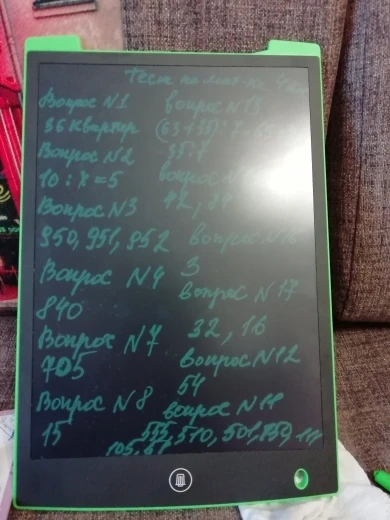 Тест по мат-ке 4
Вопрос N1
36 квартир
Вопрос N2
10 : х = 5
Вопрос N3
950, 951, 952
Вопрос N4
840
Вопрос N7
705
Вопрос N8
15
вопрос N13
(63+35):7=
35:7
вопрос
вопрос N16
3
вопрос N17
32, 16
вопрос N12
54
вопрос N11
510, 501,
105,